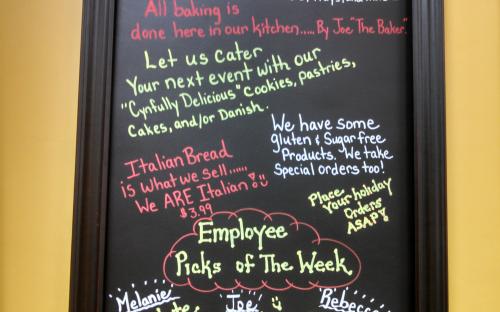 All baking is
done here in our kitchen..... By Joe "The Baker".
Let us cater
Your next event with our
"Cynfully Delicious" Cookies, pastries,
Cakes, and/or Danish.
We have some
gluten & Sugar free
Products. We take
Special orders too!
Italian Bread
is what we sell......
We ARE Italian!
$3.99
Place
Your holiday
Orders
ASAP!
Employee
Picks of The Week
Melanie
Joe
Rebecca